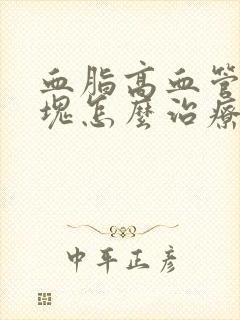 血脂高血管
塊怎麼治療
中平正彥